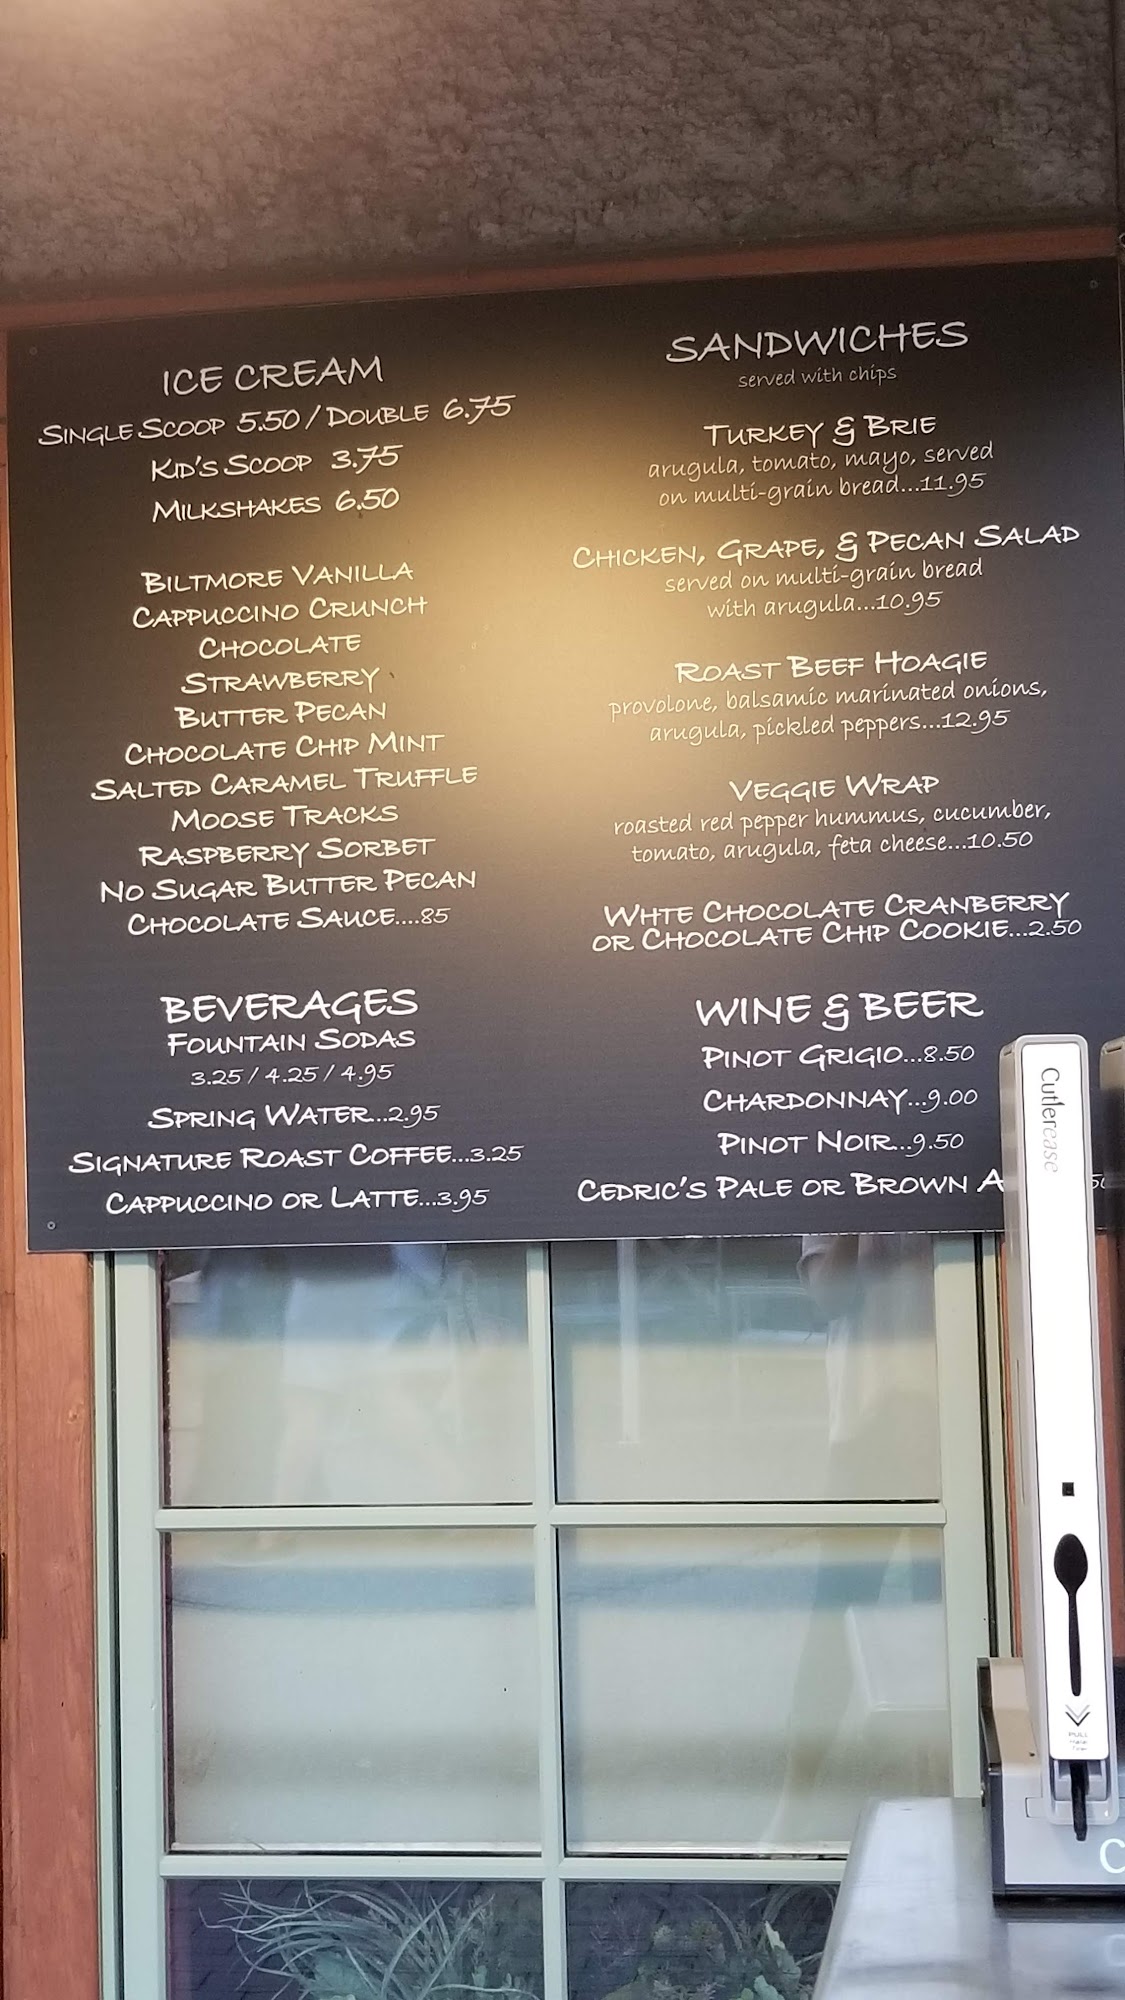 ICE CREAM
SINGLE SCOOP 5.50 / DOUBLE 6.75
KID'S SCOOP 3.75
MILKSHAKES 6.50
BILTMORE VANILLA
CAPPUCCINO CRUNCH
CHOCOLATE
STRAWBERRY
BUTTER PECAN
CHOCOLATE CHIP MINT
SALTED CARAMEL TRUFFLE
MOOSE TRACKS
RASPBERRY SORBET
NO SUGAR BUTTER PECAN
CHOCOLATE SAUCE....85
BEVERAGES
FOUNTAIN SODAS
3.25 / 4.25 / 4.95
SPRING WATER...2.95
SIGNATURE ROAST COFFEE...3.25
CAPPUCCINO OR LATTE...3.95
SANDWICHES
served with chips
TURKEY & BRIE
arugula, tomato, mayo, served
on multi-grain bread...11.95
CHICKEN, GRAPE, & PECAN SALAD
served on multi-grain bread
with arugula...10.95
ROAST BEEF HOAGIE
provolone, balsamic marinated onions,
arugula, pickled peppers...12.95
VEGGIE WRAP
roasted red pepper hummus, cucumber,
tomato, arugula, feta cheese...10.50
WHTE CHOCOLATE CRANBERRY
OR CHOCOLATE CHIP COOKIE...2.50
WINE & BEER
PINOT GRIGIO...8.50
CHARDONNAY...9.00
PINOT NOIR...9.50
CEDRIC'S PALE OR BROWN A
Cutlerease
PULL